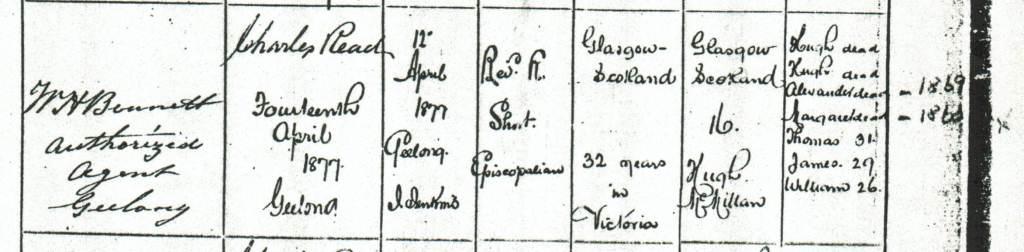 W H Bennett
Authorized
Agent
Geelong
Charles Read
Fourteenth
April
1877.
Geelong
12"
April
1877
Geelong.
Revd. R.
Short.
Episcopalian
Glasgow-
Scotland
32 years
in
Victoria
Glasgow
Scotland
16.
Hugh
McMillan
Hugh dead
Hugh dead
Alexander dead - 1869
Margaret dead
Thomas 31.
James. 29.
William 26.